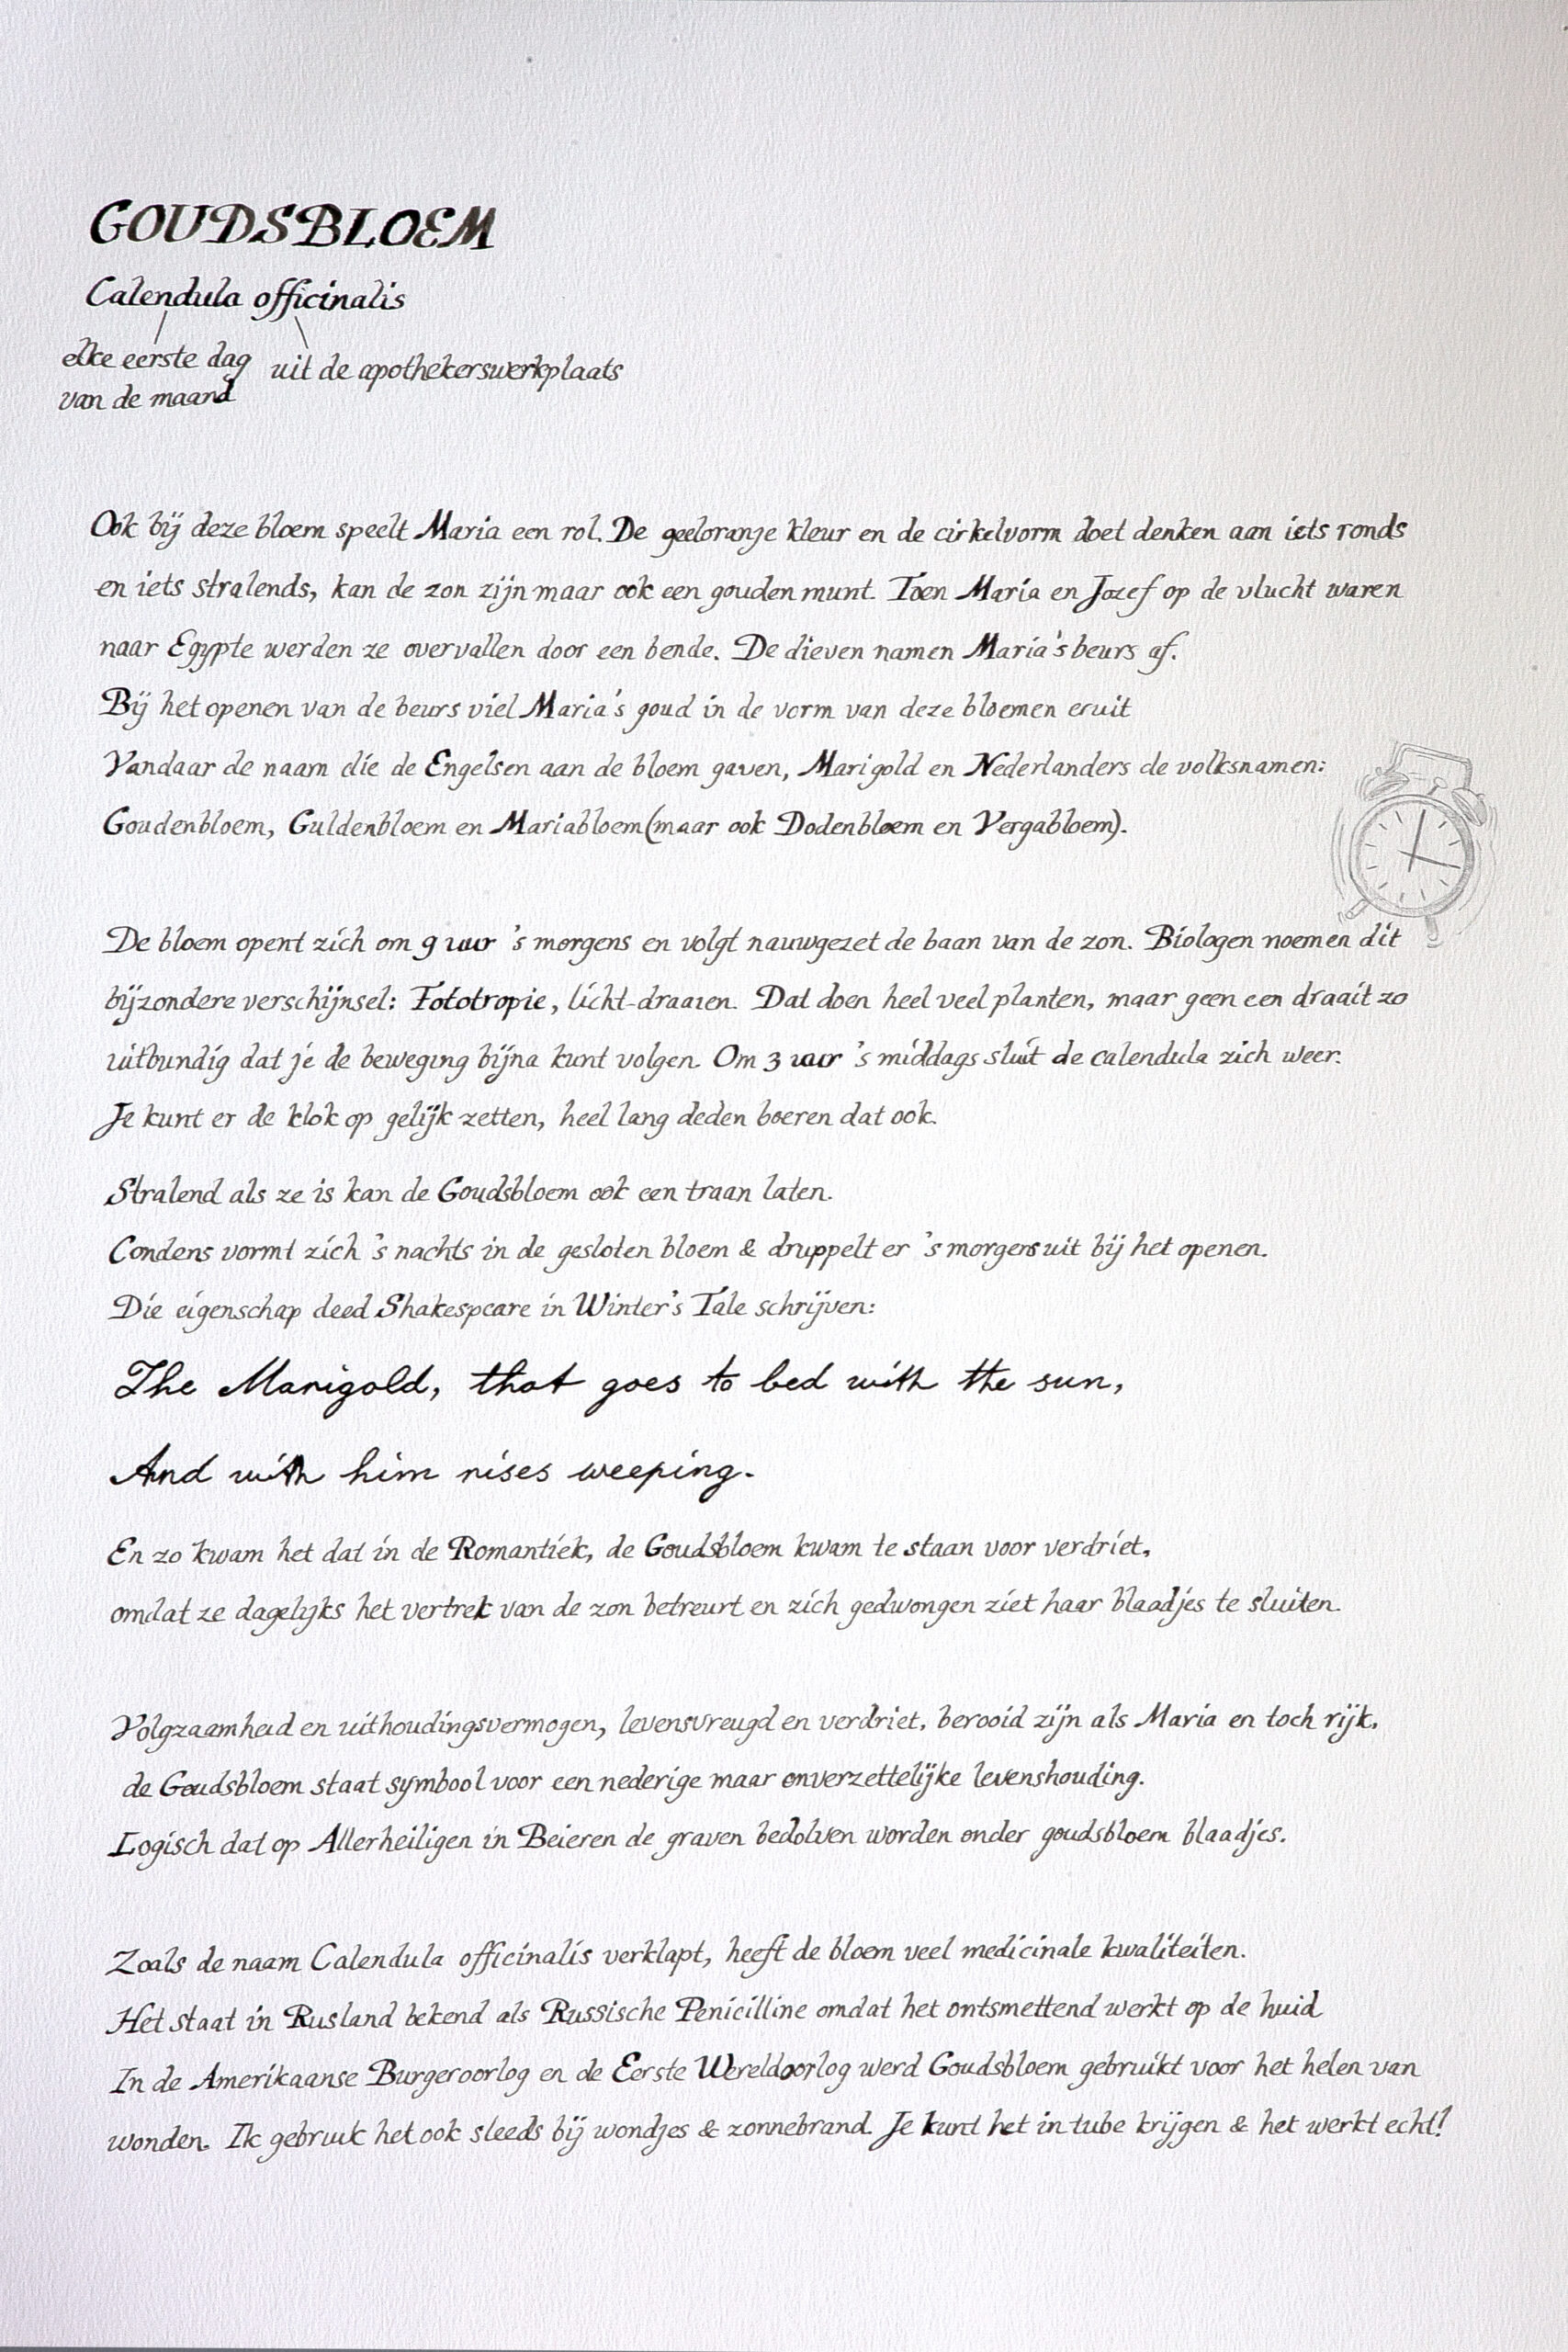 GOUDSBLOEM
Calendula officinalis
elke eerste dag uit de apothekerswerkplaats
van de maand
Ook bij deze bloem speelt Maria een rol. De geeloranje kleur en de cirkelvorm doet denken aan iets ronds
en iets stralends, kan de zon zijn maar ook een gouden munt. Toen Maria en Jozef op de vlucht waren
naar Egypte werden ze overvallen door een bende. De dieven namen Maria's beurs af.
Bij het openen van de beurs viel Maria's goud in de vorm van deze bloemen eruit
Vandaar de naam die de Engelsen aan de bloem gaven, Marigold en Nederlanders de volksnamen:
Goudenbloem, Guldenbloem en Mariabloem (maar ook Dodenbloem en Vergabloem).
De bloem opent zich om 9 uur 's morgens en volgt nauwgezet de baan van de zon. Biologen noemen dit
bijzondere verschijnsel: Fototropie, licht-draaien. Dat doen heel veel planten, maar geen een draait zo
uitbundig dat je de beweging bijna kunt volgen. Om 3 uur 's middags sluit de calendula zich weer.
Je kunt er de klok op gelijk zetten, heel lang deden boeren dat ook.
Stralend als ze is kan de Goudsbloem ook een traan laten.
Condens vormt zich 's nachts in de gesloten bloem & druppelt er 's morgens uit bij het openen.
Die eigenschap deed Shakespeare in Winter's Tale schrijven:
The Marigold, that goes to bed with the sun,
And with him rises weeping.
En zo kwam het dat in de Romantiek, de Goudsbloem kwam te staan voor verdriet,
omdat ze dagelijks het vertrek van de zon betreurt en zich gedwongen ziet haar blaadjes te sluiten.
Volgzaamheid en uithoudingsvermogen, levensvreugd en verdriet, berooid zijn als Maria en toch rijk,
de Goudsbloem staat symbool voor een nederige maar onverzettelijke levenshouding.
Logisch dat op Allerheiligen in Beieren de graven bedolven worden onder goudsbloem blaadjes.
Zoals de naam Calendula officinalis verklapt, heeft de bloem veel medicinale kwaliteiten.
Het staat in Rusland bekend als Russische Penicilline omdat het ontsmettend werkt op de huid
In de Amerikaanse Burgeroorlog en de Eerste Wereldoorlog werd Goudsbloem gebruikt voor het helen van
wonden. Ik gebruik het ook steeds bij wondjes & zonnebrand. Je kunt het in tube krijgen & het werkt echt!